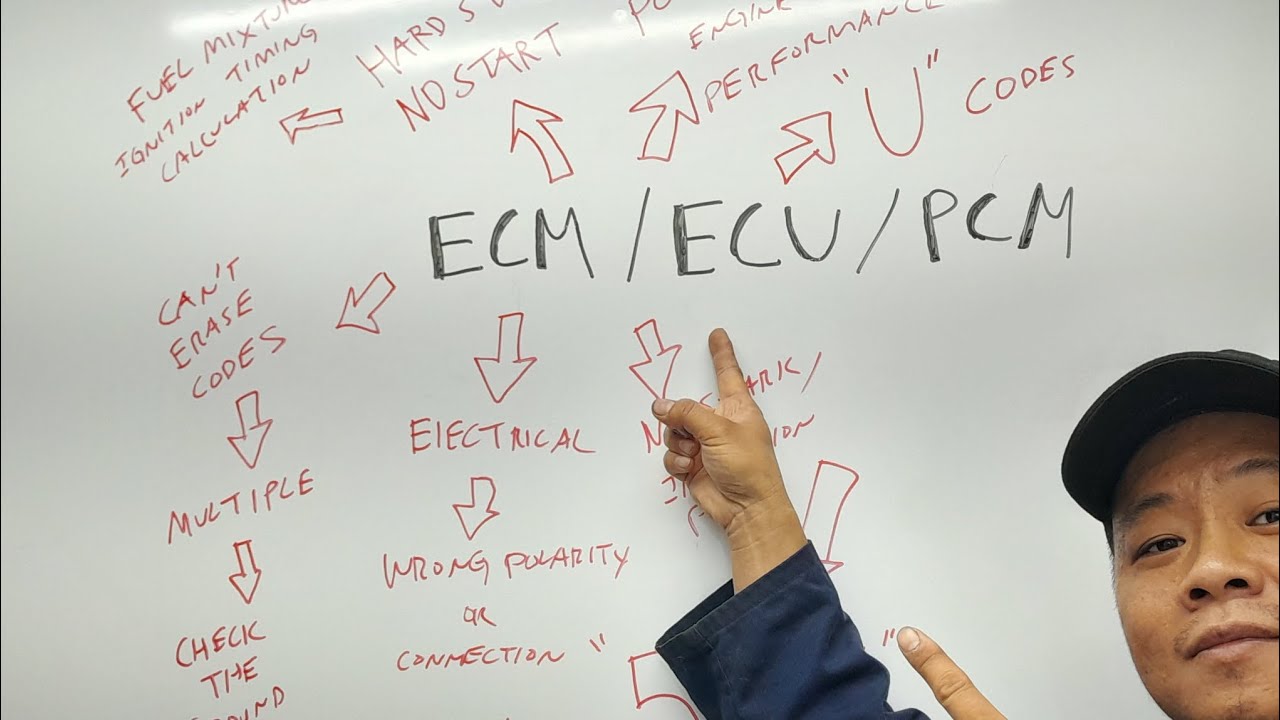 FUEL MIXTURE
IGNITION TIMING
CALCULATION
HARD
NO START
ENGINE
PERFORMANCE
"U" CODES
ECM / ECU / PCM
CAN'T
ERASE
CODES
MULTIPLE
CHECK
THE
ElECTRICAL
WRONG POLARITY
OR
CONNECTION "
5 "